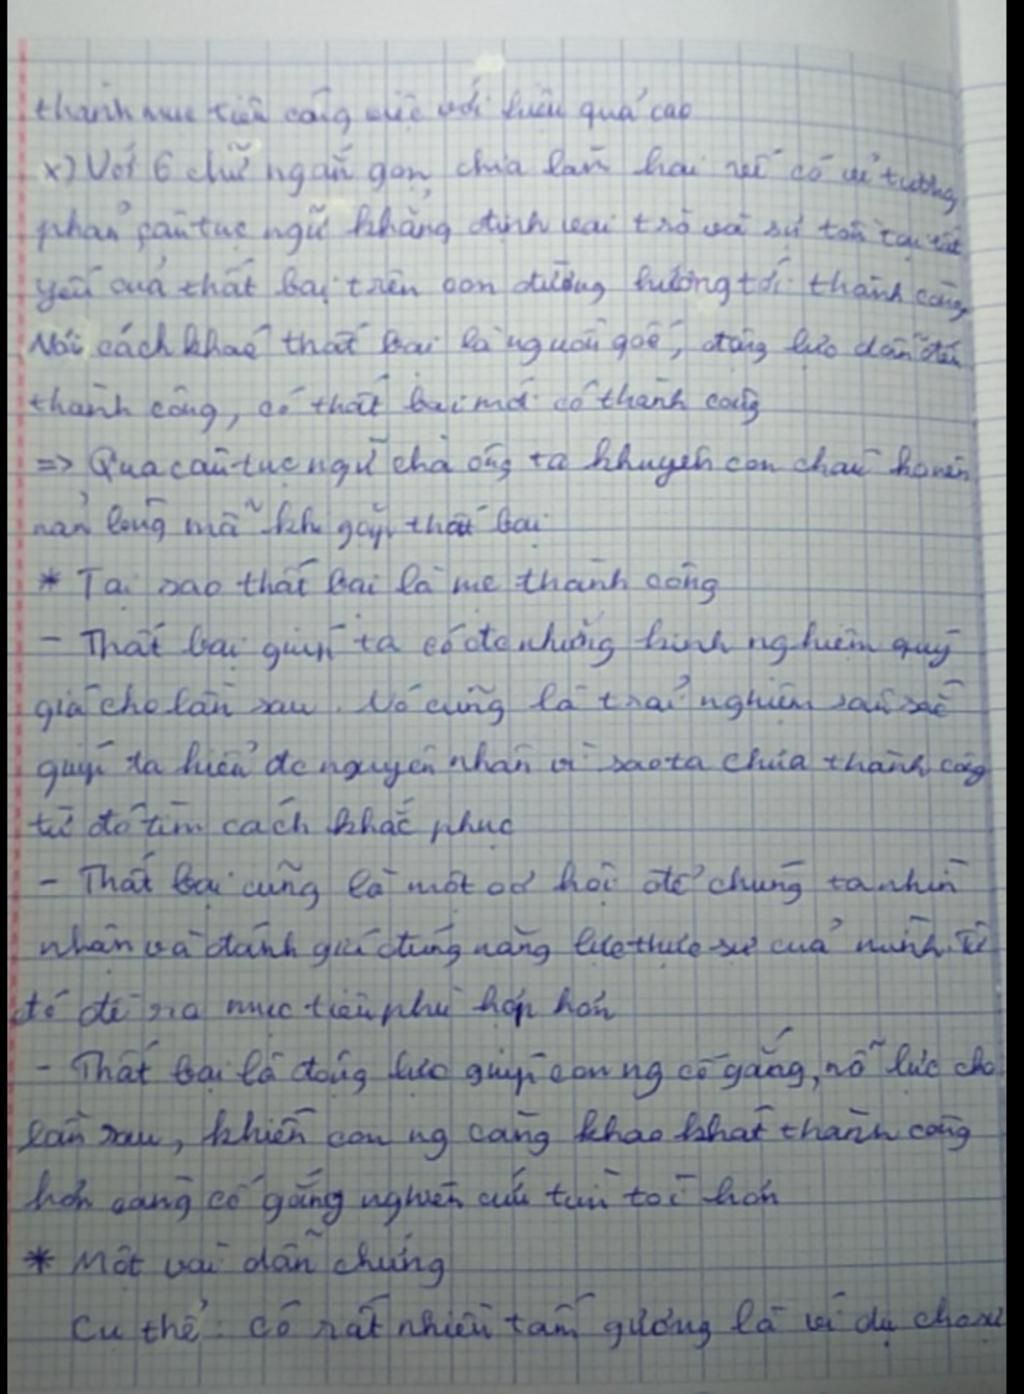 thành mục tiêu công việc với hiệu quả cao
x) Với 6 chữ ngắn gọn, chia làm hai vế có ý tương
phản, câu tục ngữ khẳng định vai trò và sự tồn tại tất
yếu của thất bại trên con đường hướng tới thành công,
Nói cách khác thất bại là nguồn gốc, động lực dẫn đến
thành công, có thất bại mới có thành công
=> Qua câu tục ngữ cha ông ta khuyên con cháu ko nên
nản lòng mỗi khi gặp thất bại
* Tại sao thất bại là mẹ thành công
- Thất bại giúp ta có đc những kinh nghiệm quý
giá cho lần sau. Nó cũng là trải nghiệm sâu sắc
giúp ta hiểu đc nguyên nhân vì sao ta chưa thành công
từ đó tìm cách khắc phục
- Thất bại cũng là một cơ hội để chúng ta nhìn
nhận và đánh giá đúng năng lực thực sự của mình. Từ
đó đề ra mục tiêu phù hợp hơn
- Thất bại là động lực giúp con ng cố gắng, nỗ lực cho
lần sau, khiến con ng càng khao khát thành công
hơn càng cố gắng nghiên cứu tìm tòi hơn
* Một vài dẫn chứng
Cụ thể: có rất nhiều tấm gương là ví dụ cho